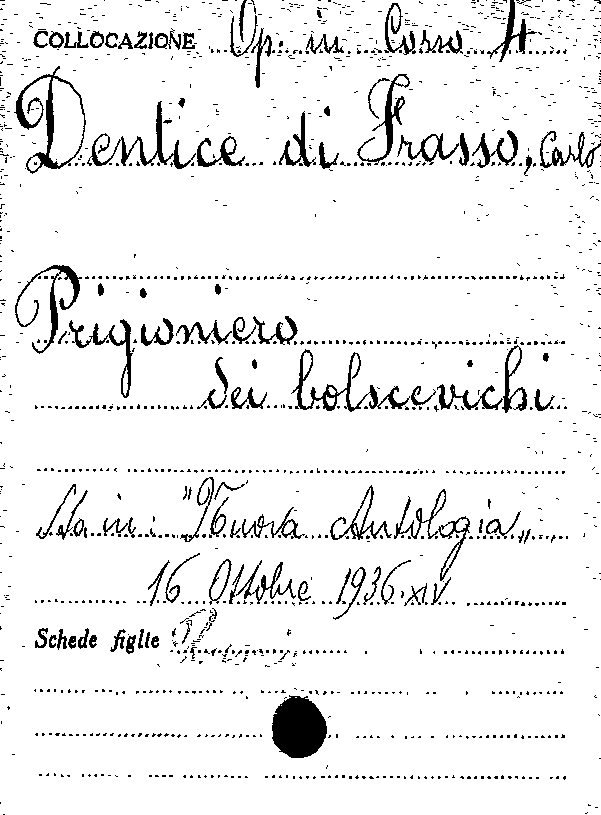 COLLOCAZIONE Op. in Corso 4
Dentice di Frasso, Carlo
Prigioniero
dei bolscevichi
Sta in: "Nuova Antologia„
16 Ottobre 1936.XIV
Schede figlie